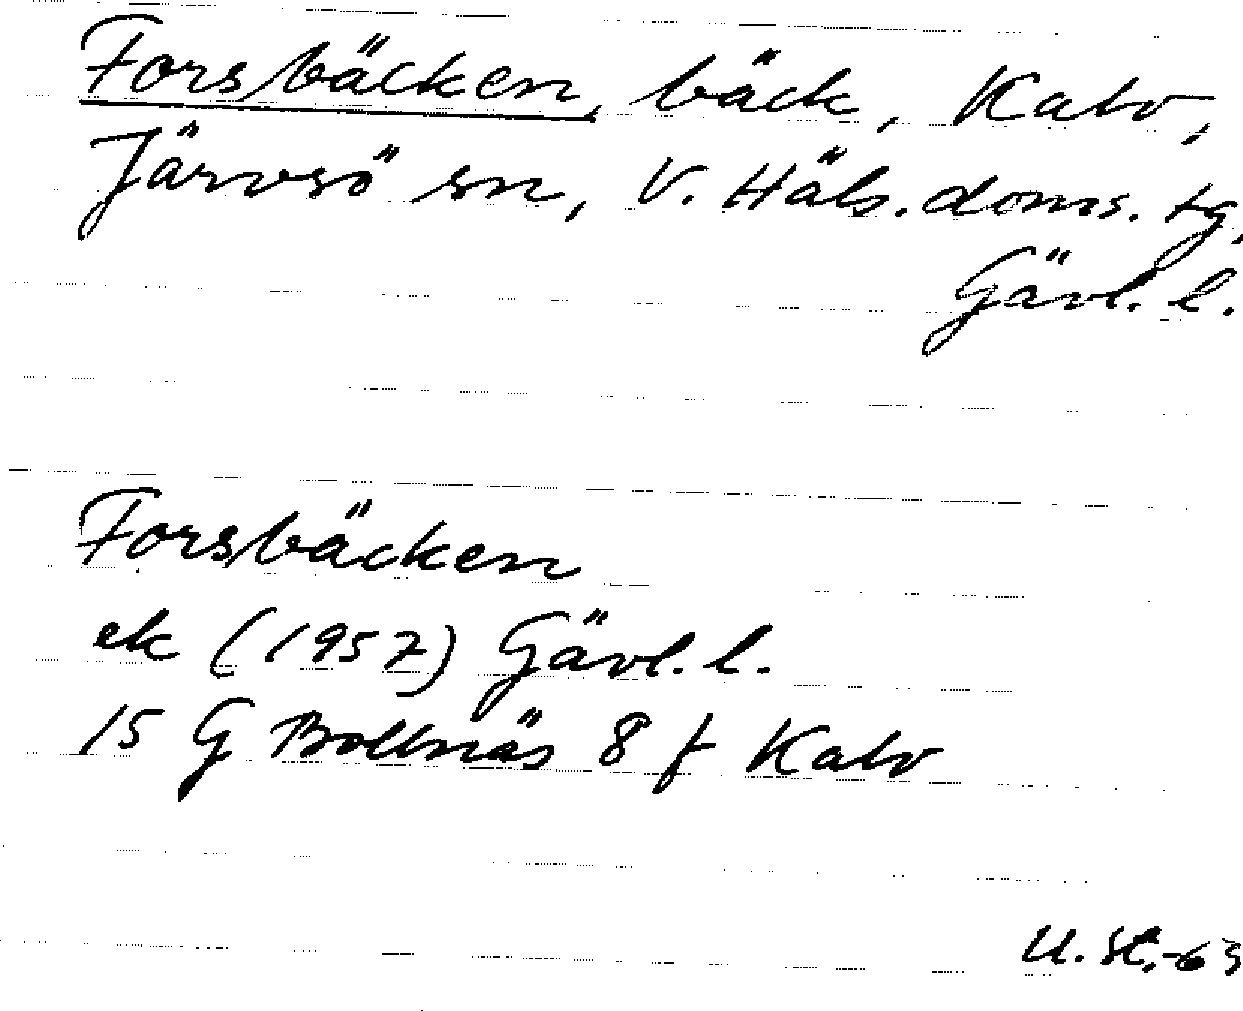 Forsbäcken, bäck, Kalv,
Järvsö sn, V. Häls. doms. tg,
Gävl. l.
Forsbäcken
ek (1957) Gävl. l.
15 G Bollnäs 8 f Kalv
U. St.-63